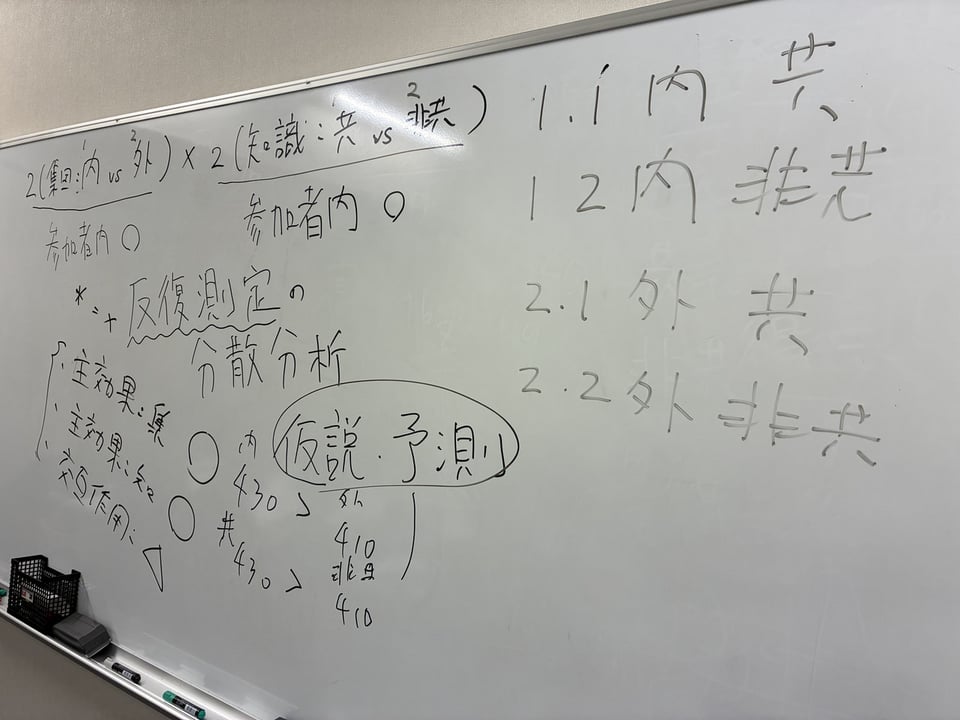 2(集団:内 vs 外) × 2(知識:共 vs 非共)
2
2
参加者内 ○
参加者内 ○
反復測定の
分散分析
主効果:集 ○
主効果:知 ○
交互作用:
仮説・予測
内
外
430 >
410
共
非共
430 >
410
1.1 内 共
1 2 内 非共
2.1 外 共
2.2 外 非共